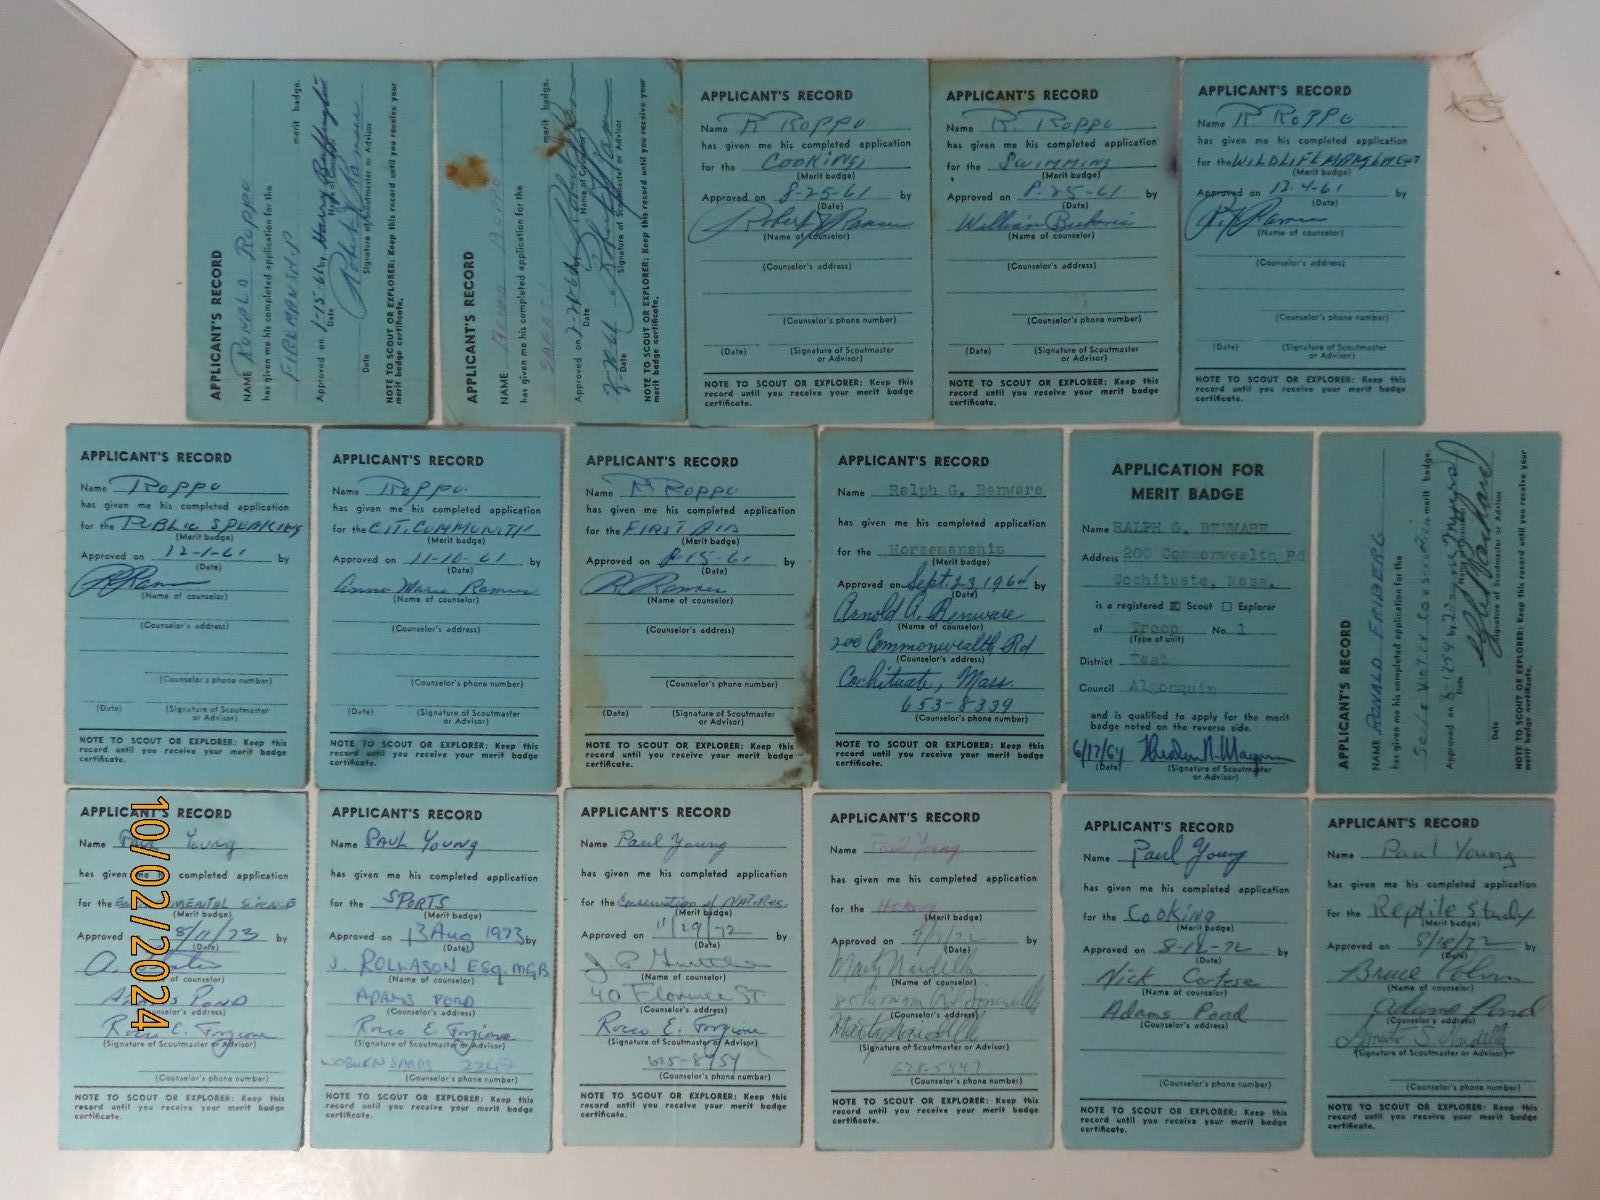 APPLICANT'S RECORD
NAME RONALD ROPPO
has given me his completed application for the
FIREMANSHIP merit badge.
Approved on 1-15-61 by Harry
Date Name of Counselor
Date Signature of Scoutmaster or Advisor
NOTE TO SCOUT OR EXPLORER: Keep this record until you receive your
merit badge certificate.
APPLICANT'S RECORD
NAME
has given me his completed application for the
SAFETY merit badge.
Approved on by
Date Name of Counselor
Date Signature of Scoutmaster or Advisor
NOTE TO SCOUT OR EXPLORER: Keep this record until you receive your
merit badge certificate.
APPLICANT'S RECORD
Name R ROPPO
has given me his completed application
for the COOKING
(Merit badge)
Approved on 8-25-61 by
(Date)
Robert Ramer
(Name of counselor)
(Counselor's address)
(Counselor's phone number)
(Date) (Signature of Scoutmaster
or Advisor)
NOTE TO SCOUT OR EXPLORER: Keep this
record until you receive your merit badge
certificate.
APPLICANT'S RECORD
Name R. ROPPO
has given me his completed application
for the SWIMMING
(Merit badge)
Approved on 8-25-61 by
(Date)
William
(Name of counselor)
(Counselor's address)
(Counselor's phone number)
(Date) (Signature of Scoutmaster
or Advisor)
NOTE TO SCOUT OR EXPLORER: Keep this
record until you receive your merit badge
certificate.
APPLICANT'S RECORD
Name R ROPPO
has given me his completed application
for the WILDLIFE
(Merit badge)
Approved on 12-4-61 by
(Date)
(Name of counselor)
(Counselor's address)
(Counselor's phone number)
(Date) (Signature of Scoutmaster
or Advisor)
NOTE TO SCOUT OR EXPLORER: Keep this
record until you receive your merit badge
certificate.
APPLICANT'S RECORD
Name ROPPO
has given me his completed application
for the PUBLIC SPEAKING
(Merit badge)
Approved on 12-1-61 by
(Date)
R Ramer
(Name of counselor)
(Counselor's address)
(Counselor's phone number)
(Date) (Signature of Scoutmaster
or Advisor)
NOTE TO SCOUT OR EXPLORER: Keep this
record until you receive your merit badge
certificate.
APPLICANT'S RECORD
Name ROPPO
has given me his completed application
for the CIT. COMMUNITY
(Merit badge)
Approved on 11-10-61 by
(Date)
Anna Marie Ramer
(Name of counselor)
(Counselor's address)
(Counselor's phone number)
(Date) (Signature of Scoutmaster
or Advisor)
NOTE TO SCOUT OR EXPLORER: Keep this
record until you receive your merit badge
certificate.
APPLICANT'S RECORD
Name R ROPPO
has given me his completed application
for the FIRST AID
(Merit badge)
Approved on 8-15-61 by
(Date)
R Ramer
(Name of counselor)
(Counselor's address)
(Counselor's phone number)
(Date) (Signature of Scoutmaster
or Advisor)
NOTE TO SCOUT OR EXPLORER: Keep this
record until you receive your merit badge
certificate.
APPLICANT'S RECORD
Name Ralph G. Benware
has given me his completed application
for the Horsemanship
(Merit badge)
Approved on Sept. 23, 1964 by
(Date)
Arnold A. Benware
(Name of counselor)
200 Commonwealth Rd
(Counselor's address)
Cochituate, Mass.
653-8339
(Counselor's phone number)
NOTE TO SCOUT OR EXPLORER: Keep this
record until you receive your merit badge
certificate.
APPLICATION FOR
MERIT BADGE
Name RALPH G. BENWARE
Address 200 Commonwealth Rd
Cochituate, Mass.
is a registered Scout Explorer
of Troop No. 1
(Type of unit)
District East
Council Algonquin
and is qualified to apply for the merit
badge noted on the reverse side.
6/17/64
(Date) (Signature of Scoutmaster
or Advisor)
APPLICANT'S RECORD
NAME RONALD FRIBERG
has given me his completed application for the
Soil & Water Conservation merit badge.
Approved on by
Date Name of Counselor
Date Signature of Scoutmaster or Advisor
NOTE TO SCOUT OR EXPLORER: Keep this record until you receive your
merit badge certificate.
APPLICANT'S RECORD
Name Paul Young
has given me his completed application
for the ENVIRONMENTAL SCIENCE
(Merit badge)
Approved 8/11/73 by
(Date)
(Name of counselor)
ADAMS POND
(Counselor's address)
Rocco E. Forgione
(Signature of Scoutmaster or Advisor)
(Counselor's phone number)
NOTE TO SCOUT OR EXPLORER: Keep this
record until you receive your merit badge
certificate.
10/02/2024
APPLICANT'S RECORD
Name PAUL YOUNG
has given me his completed application
for the SPORTS
(Merit badge)
Approved on 13 Aug 1973 by
(Date)
J. ROLLASON ESQ. MGB
(Name of counselor)
ADAMS POND
(Counselor's address)
Rocco E Forgione
(Signature of Scoutmaster or Advisor)
WOBURN SANDS
(Counselor's phone number)
NOTE TO SCOUT OR EXPLORER: Keep this
record until you receive your merit badge
certificate.
APPLICANT'S RECORD
Name Paul Young
has given me his completed application
for the Conservation of NAT. Res.
(Merit badge)
Approved on 11/29/72 by
(Date)
(Name of counselor)
40 Florence ST
(Counselor's address)
Rocco E. Forgione
(Signature of Scoutmaster or Advisor)
625-8954
(Counselor's phone number)
NOTE TO SCOUT OR EXPLORER: Keep this
record until you receive your merit badge
certificate.
APPLICANT'S RECORD
Name Paul Young
has given me his completed application
for the Hiking
(Merit badge)
Approved on by
(Date)
Marty Nardella
(Name of counselor)
(Counselor's address)
(Signature of Scoutmaster or Advisor)
(Counselor's phone number)
NOTE TO SCOUT OR EXPLORER: Keep this
record until you receive your merit badge
certificate.
APPLICANT'S RECORD
Name Paul Young
has given me his completed application
for the Cooking
(Merit badge)
Approved on 8-12-72 by
(Date)
Nick Cortese
(Name of counselor)
Adams Pond
(Counselor's address)
(Counselor's phone number)
NOTE TO SCOUT OR EXPLORER: Keep this
record until you receive your merit badge
certificate.
APPLICANT'S RECORD
Name Paul Young
has given me his completed application
for the Reptile Study
(Merit badge)
Approved on 8/18/72 by
(Date)
Bruce
(Name of counselor)
Adams Pond
(Counselor's address)
(Signature of Scoutmaster or Advisor)
(Counselor's phone number)
NOTE TO SCOUT OR EXPLORER: Keep this
record until you receive your merit badge
certificate.